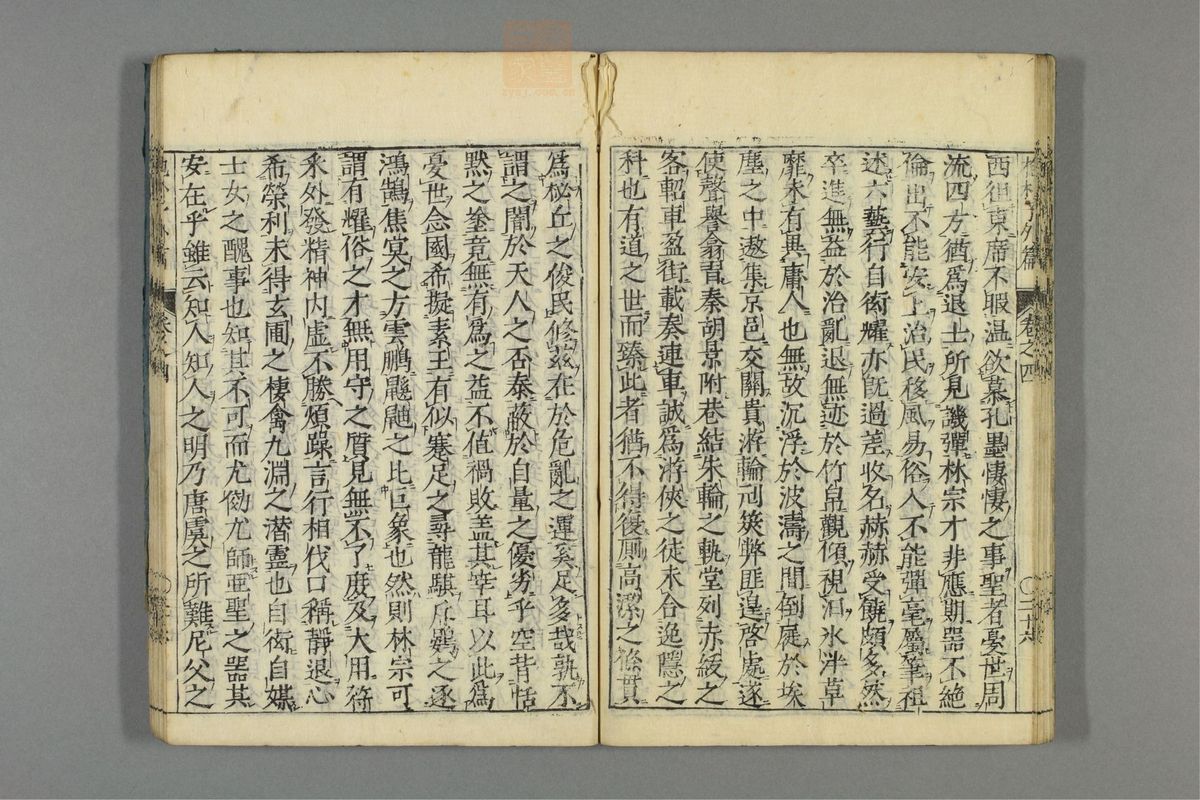 西徂東席不暇温欲慕孔墨悽悽之事聖者憂世周
流四方猶爲退士所見譏彈林宗才非應期器不絶
倫出不能安上治民移風易俗入不能彈毫屬筆祖
述六藝行自衒耀亦旣過差收名赫赫受饒頗多然
卒進無益於治亂退無迹於竹帛觀傾視汨氷泮草
靡未有異庸人也無故沉浮於波濤之間倒屣於埃
塵之中遨集京邑交關貴游輪刓筴弊匪遑啓處遂
使聲譽翕習秦胡景附巷結朱輪之軌堂列赤紱之
客軺車盈街載奏連車誠爲游俠之徒未合逸隱之
科也有道之世而臻此者猶不得復厠高潔之條貫
爲秘丘之俊民修兹在於危亂之運奚足多哉孰不
謂之闇於天人之否泰蔽於自量之優劣乎空背恬
默之塗竟無有爲之益不值禍敗盖其幸耳以此爲
憂世念國希擬素王有似蹇足之尋龍騏斥鷃之逐
鴻鵠焦冥之方雲鵬鼷鼬之比巨象也然則林宗可
謂有耀俗之才無用守之質見無不了庻及大用符
釆外發精神内虚不勝煩躁言行相伐口稱靜退心
希榮利未得玄圃之棲禽九淵之潜靈也自衒自媒
士女之醜事也知其不可而尤傚尤師亜聖之器其
安在乎雖云知人知人之明乃唐虞之所難尼父之
卷之四